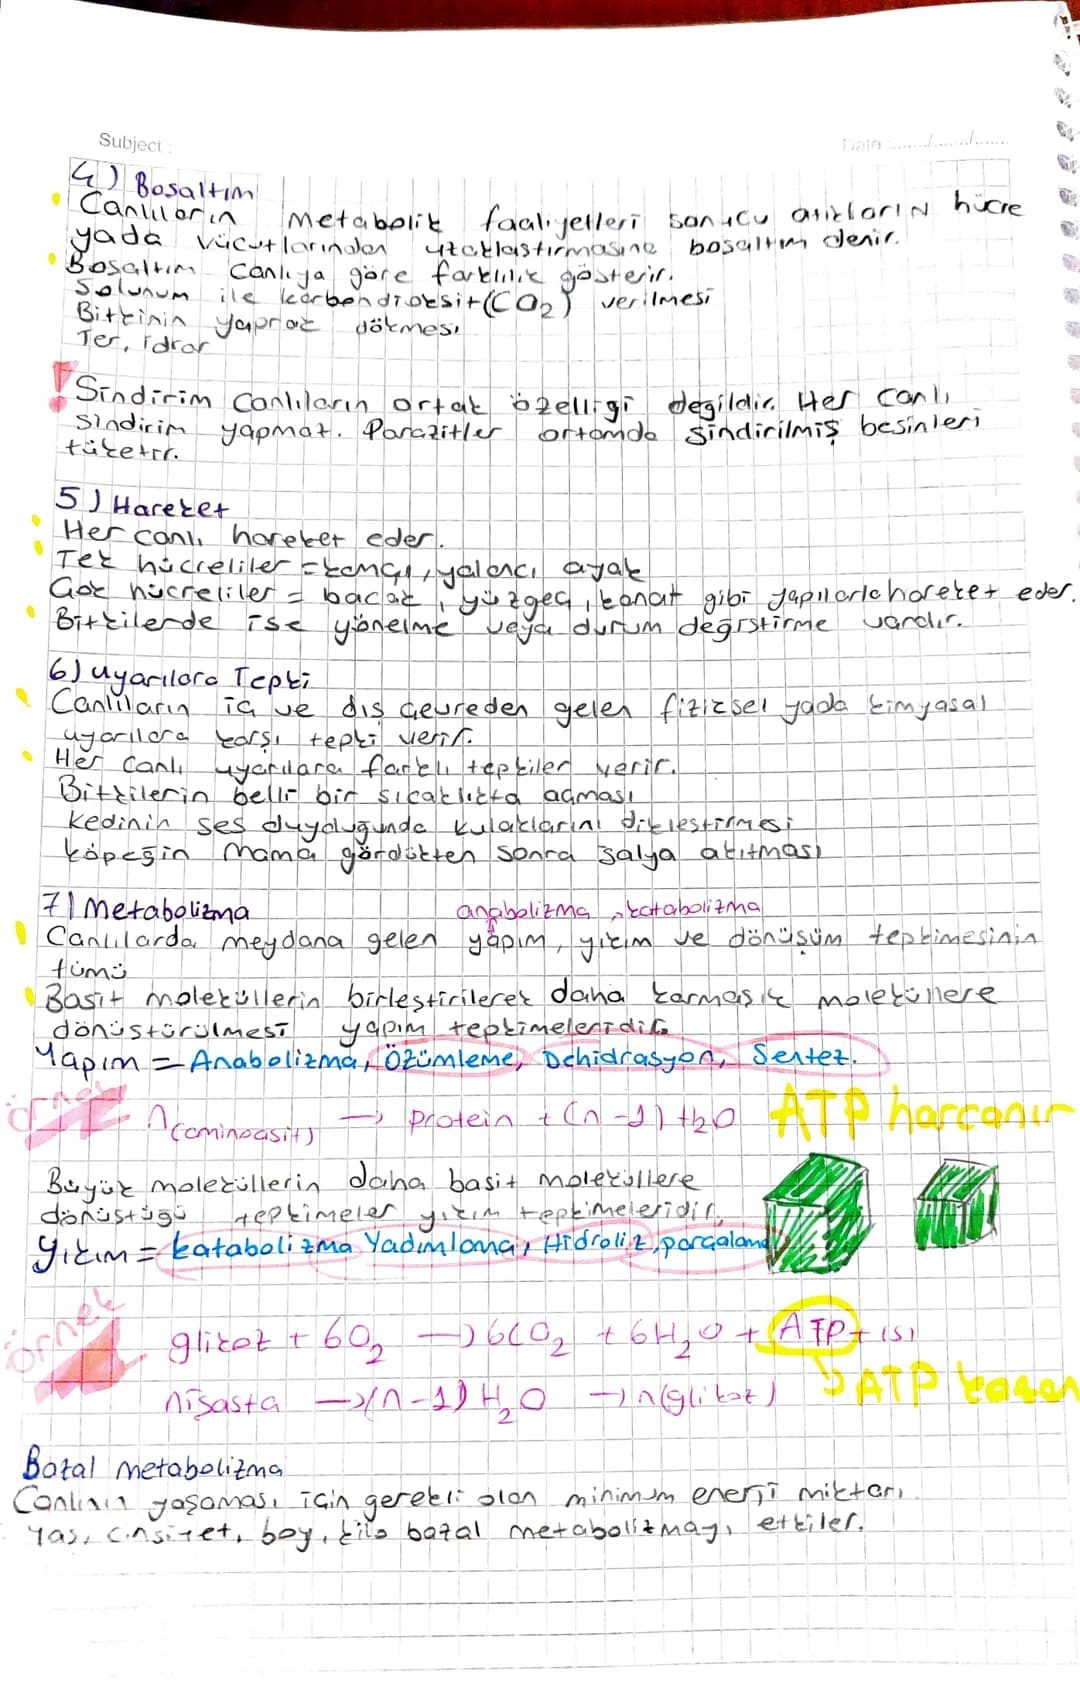 Subject :
Date : ....../....../......
4) Bosaltım
Canlıların metabolik faaliyetleri sonucu atıkların hücre
yada vücutlarından uzaklastırmasına bosaltım denir.
Bosaltım canlıya göre farklılık gösterir.
Solunum ile karbondioksit (CO2) verilmesi
Bitkinin yaprak dökmesi
Ter, idrar
! Sindirim canlıların ortak özelligi degildir. Her canlı
sindirim yapmaz. Parazitler ortamda sindirilmiş besinleri
tüketir.
5) Hareket
Her canlı hareket eder.
Tek hücreliler = kamçı, yalancı ayak
Çok hücreliler = bacak, yüzgeç, kanat gibi yapılarla hareket eder.
Bitkilerde ise yönelme veya durum değistirme vardır.
6) Uyarılara Tepki
Canlıların iç ve dış çevreden gelen fiziksel yada kimyasal
uyarılara karşı tepki verir.
Her canlı uyarılara farklı tepkiler verir.
Bitkilerin belli bir sıcaklıkta açması
kedinin ses duyduğunda kulaklarını diklestirmesi
köpeğin mama gördükten sonra salya akıtması
7) Metabolizma
anabolizma, katabolizma
Canlılarda meydana gelen yapım, yıkım ve dönüşüm tepkimesinin
tümü
Basit moleküllerin birleştirilerek daha karmaşık moleküllere
dönüstürülmesi yapım tepkimeleridir.
Yapım = Anabolizma, Özümleme, Dehidrasyon, Sentez.
örnek
n(aminoasit) → Protein + (n-1) H2O ATP harcanır
Büyük moleküllerin daha basit moleküllere
dönüstügü tepkimeler yıkım tepkimeleridir.
Yıkım = katabolizma Yadımlama, Hidroliz, parçalama
örnek
glikoz + 6O2 → 6CO2 + 6H2O + ATP + ısı
nişasta → (n-1) H2O → n(glikoz) ATP kazan
Bazal metabolizma
Canlının yaşaması için gerekli olan minimum enerji miktarı
Yas, cinsiyet, boy, kilo bazal metabolizmayı etkiler.